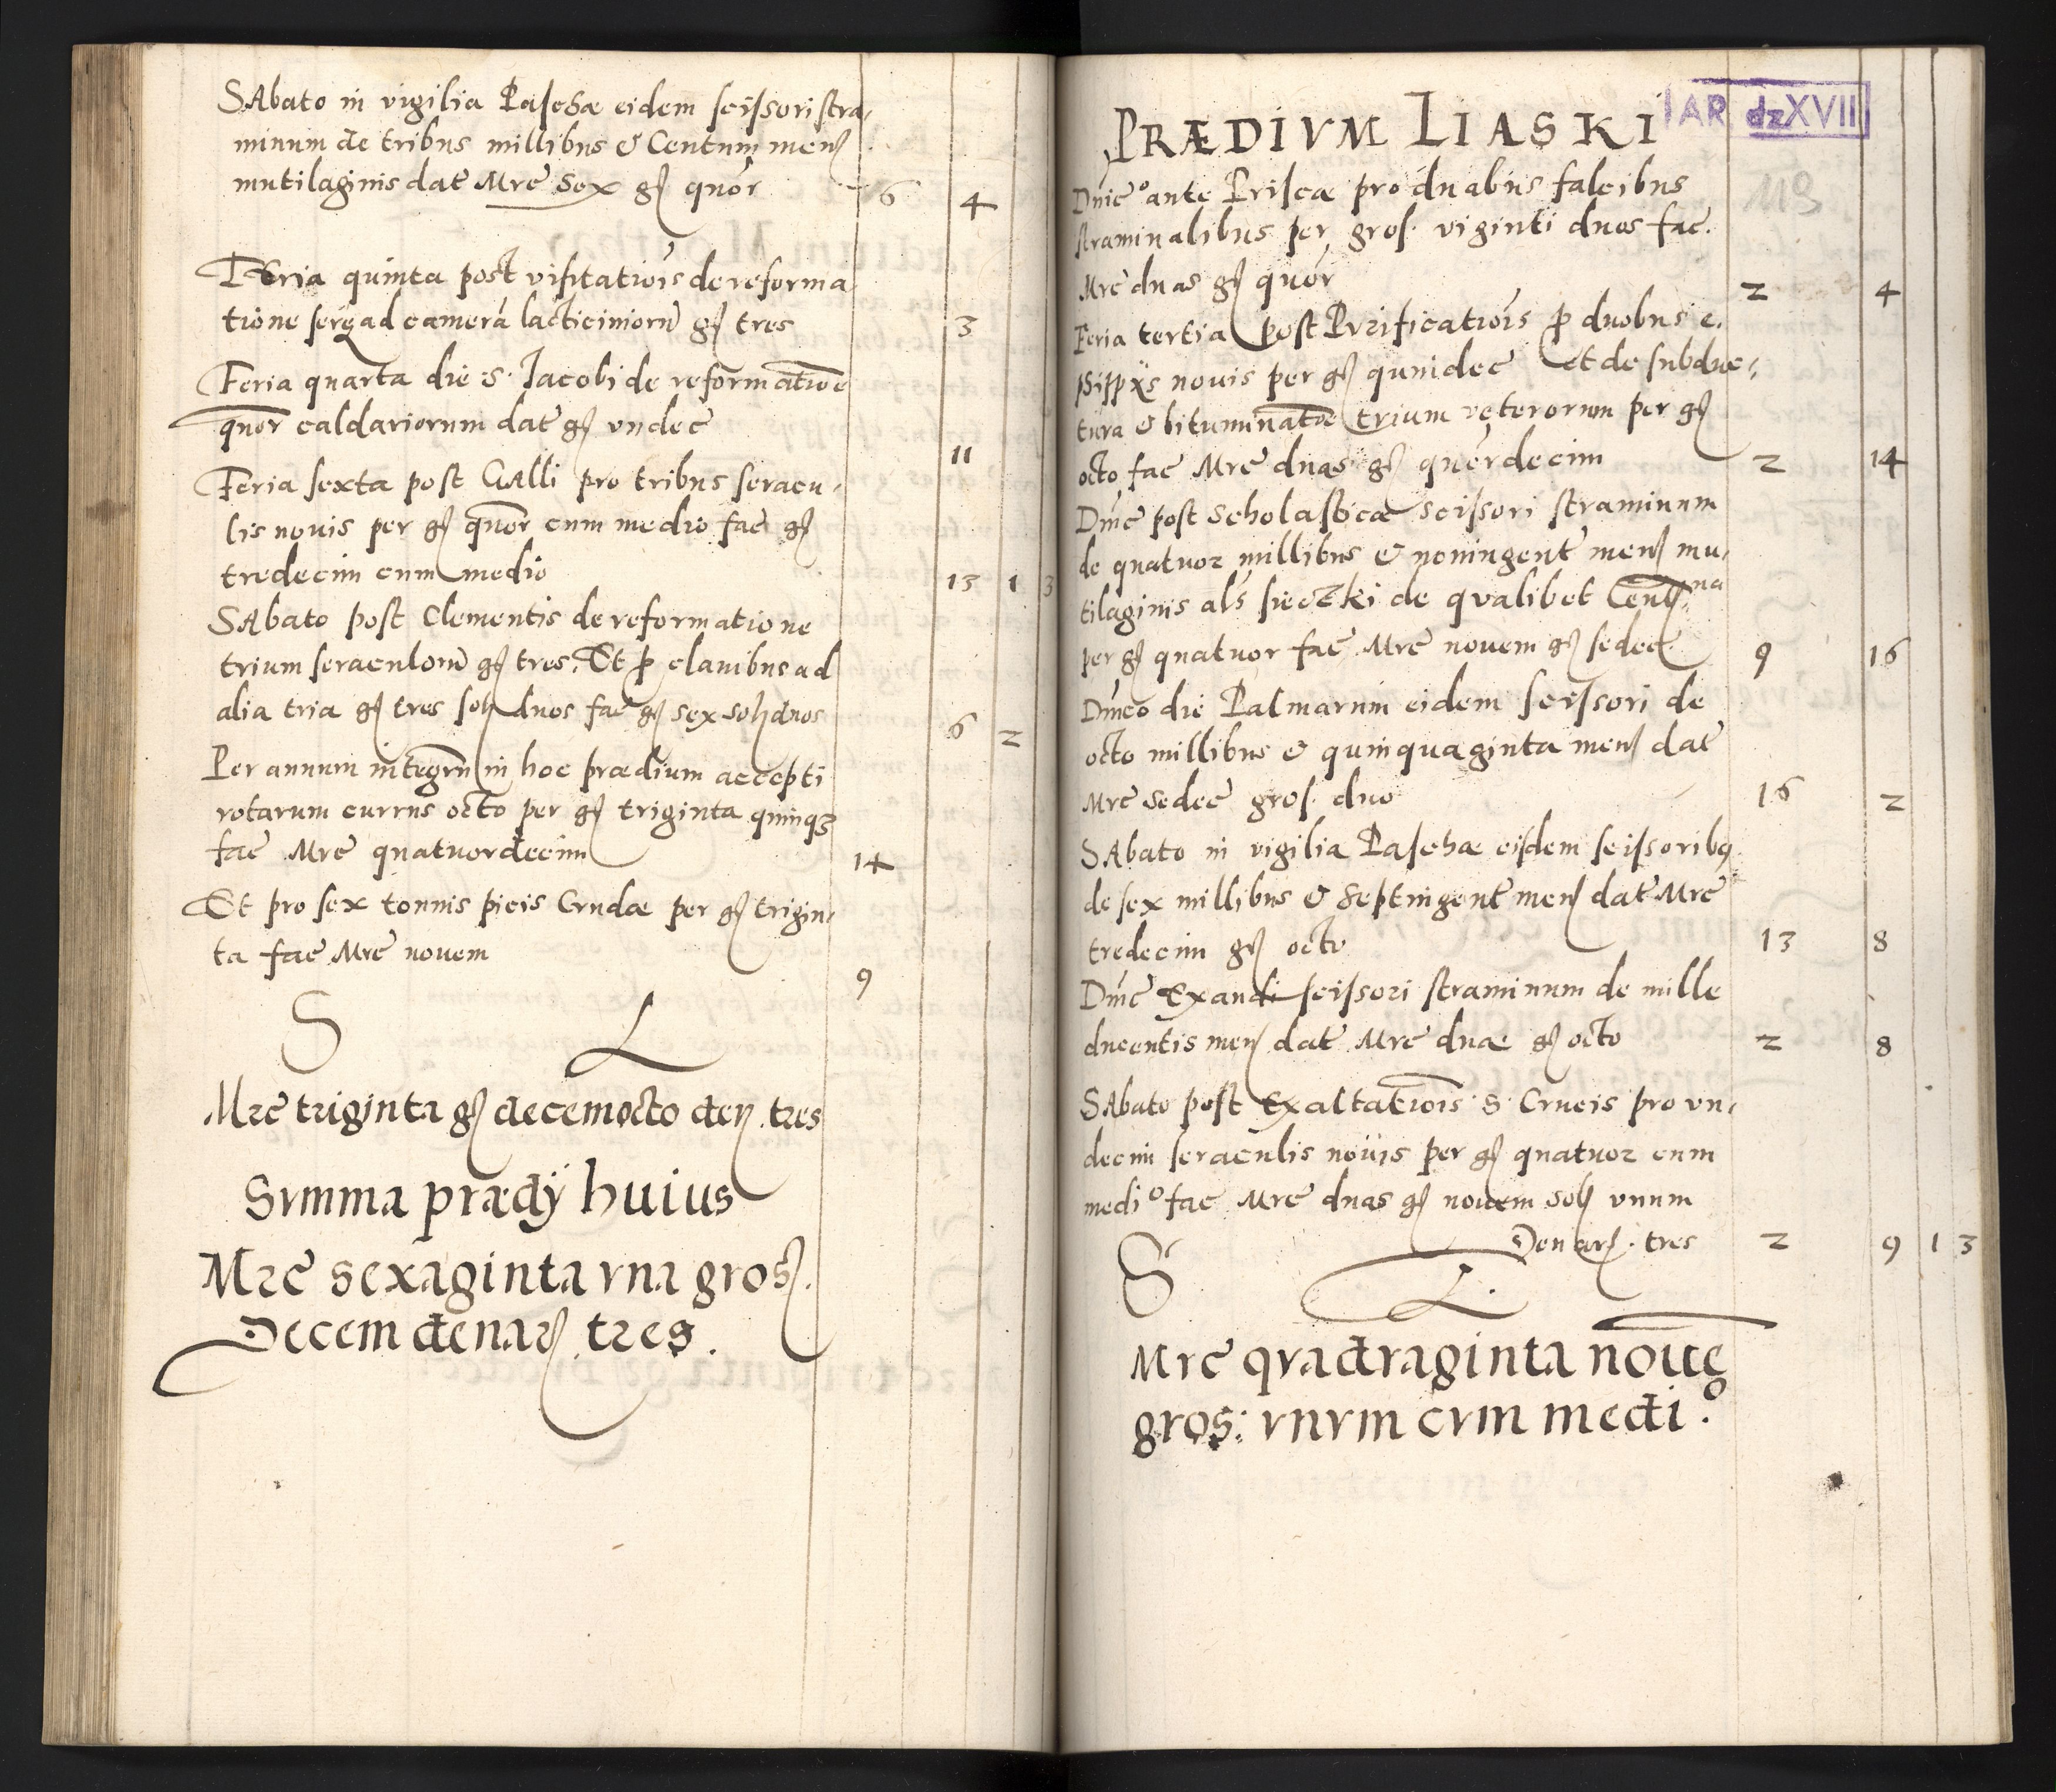 SAbato in vigilia Paschæ eidem scissori stra,
minum de tribus millibus & Centum mens
mutilaginis dat Mrc Sex gs quor 6 4
FEria quinta post visitatiois de reforma
tione seręad camerā lacticiniorū gs tres 3
Feria quarta die S. Jacobi de reformatioe
quor caldariorum dat gs vndec 11
Feria sexta post GAlli pro tribus seracu,
lis nouis per gs quor cum medio fac gs
tredecim cum medio 13 1 3
SAbato post Clementis de reformatione
trium seraculorū gs tres. Et p clauibus ad
alia tria gs tres sol duos fac gs sex sol duos 6 2
Per annum integrū in hoc prædium accepti
rotarum currus octo per gs triginta quinqȝ
fac Mrc quatuordecim 14
Et pro sex tonnis picis Crudæ per gs trigin,
ta fac Mrc nouem 9
S L
Mrc triginta gs decemocto den tres
Svmma prædÿ huius
Mrc sexaginta vna gros.
Decem denar tres.
IAR dz XVII
PRÆDIVM LIASKI
119
Dnico ante Priscæ pro duabus falcibus
straminalibus per gros. viginti duos fac.
Mrc duas gs quor 2 4
Feria tertia post Purificatiois p duobus e.
per gs quindec et de subduc,
tura & bituminatoe trium veterorum per gs
octo fac Mrc duas gs quordecim 2 14
Dnic post Scholasticæ scissori straminum
de quatuor millibus & noningent mens mu,
tilaginis als sieczki de qvalibet Centena
per gs quatuor fac Mrc nouem gs sedec. 9 16
Dnico die Palmarum eidem scissori de
octo millibus & quinquaginta mens dat
Mrc sedec gros. duo 16 2
SAbato in vigilia Paschæ eisdem scissoribȝ
de sex millibus & Septingent mens dat Mrc
tredecim gs octo 13 8
Dnic Exaudi scissori straminum de mille
ducentis mens dat Mrc duæ gs octo 2 8
SAbato post Exaltatiois S. Crucis pro vn,
decim seraculis nouis per gs quatuor cum
medio fac Mrc duas gs nouem sol vnum
Denar. tres 2 9 1 3
S L.
Mrc qvadraginta nouę
gros: vnvm cvm medio.